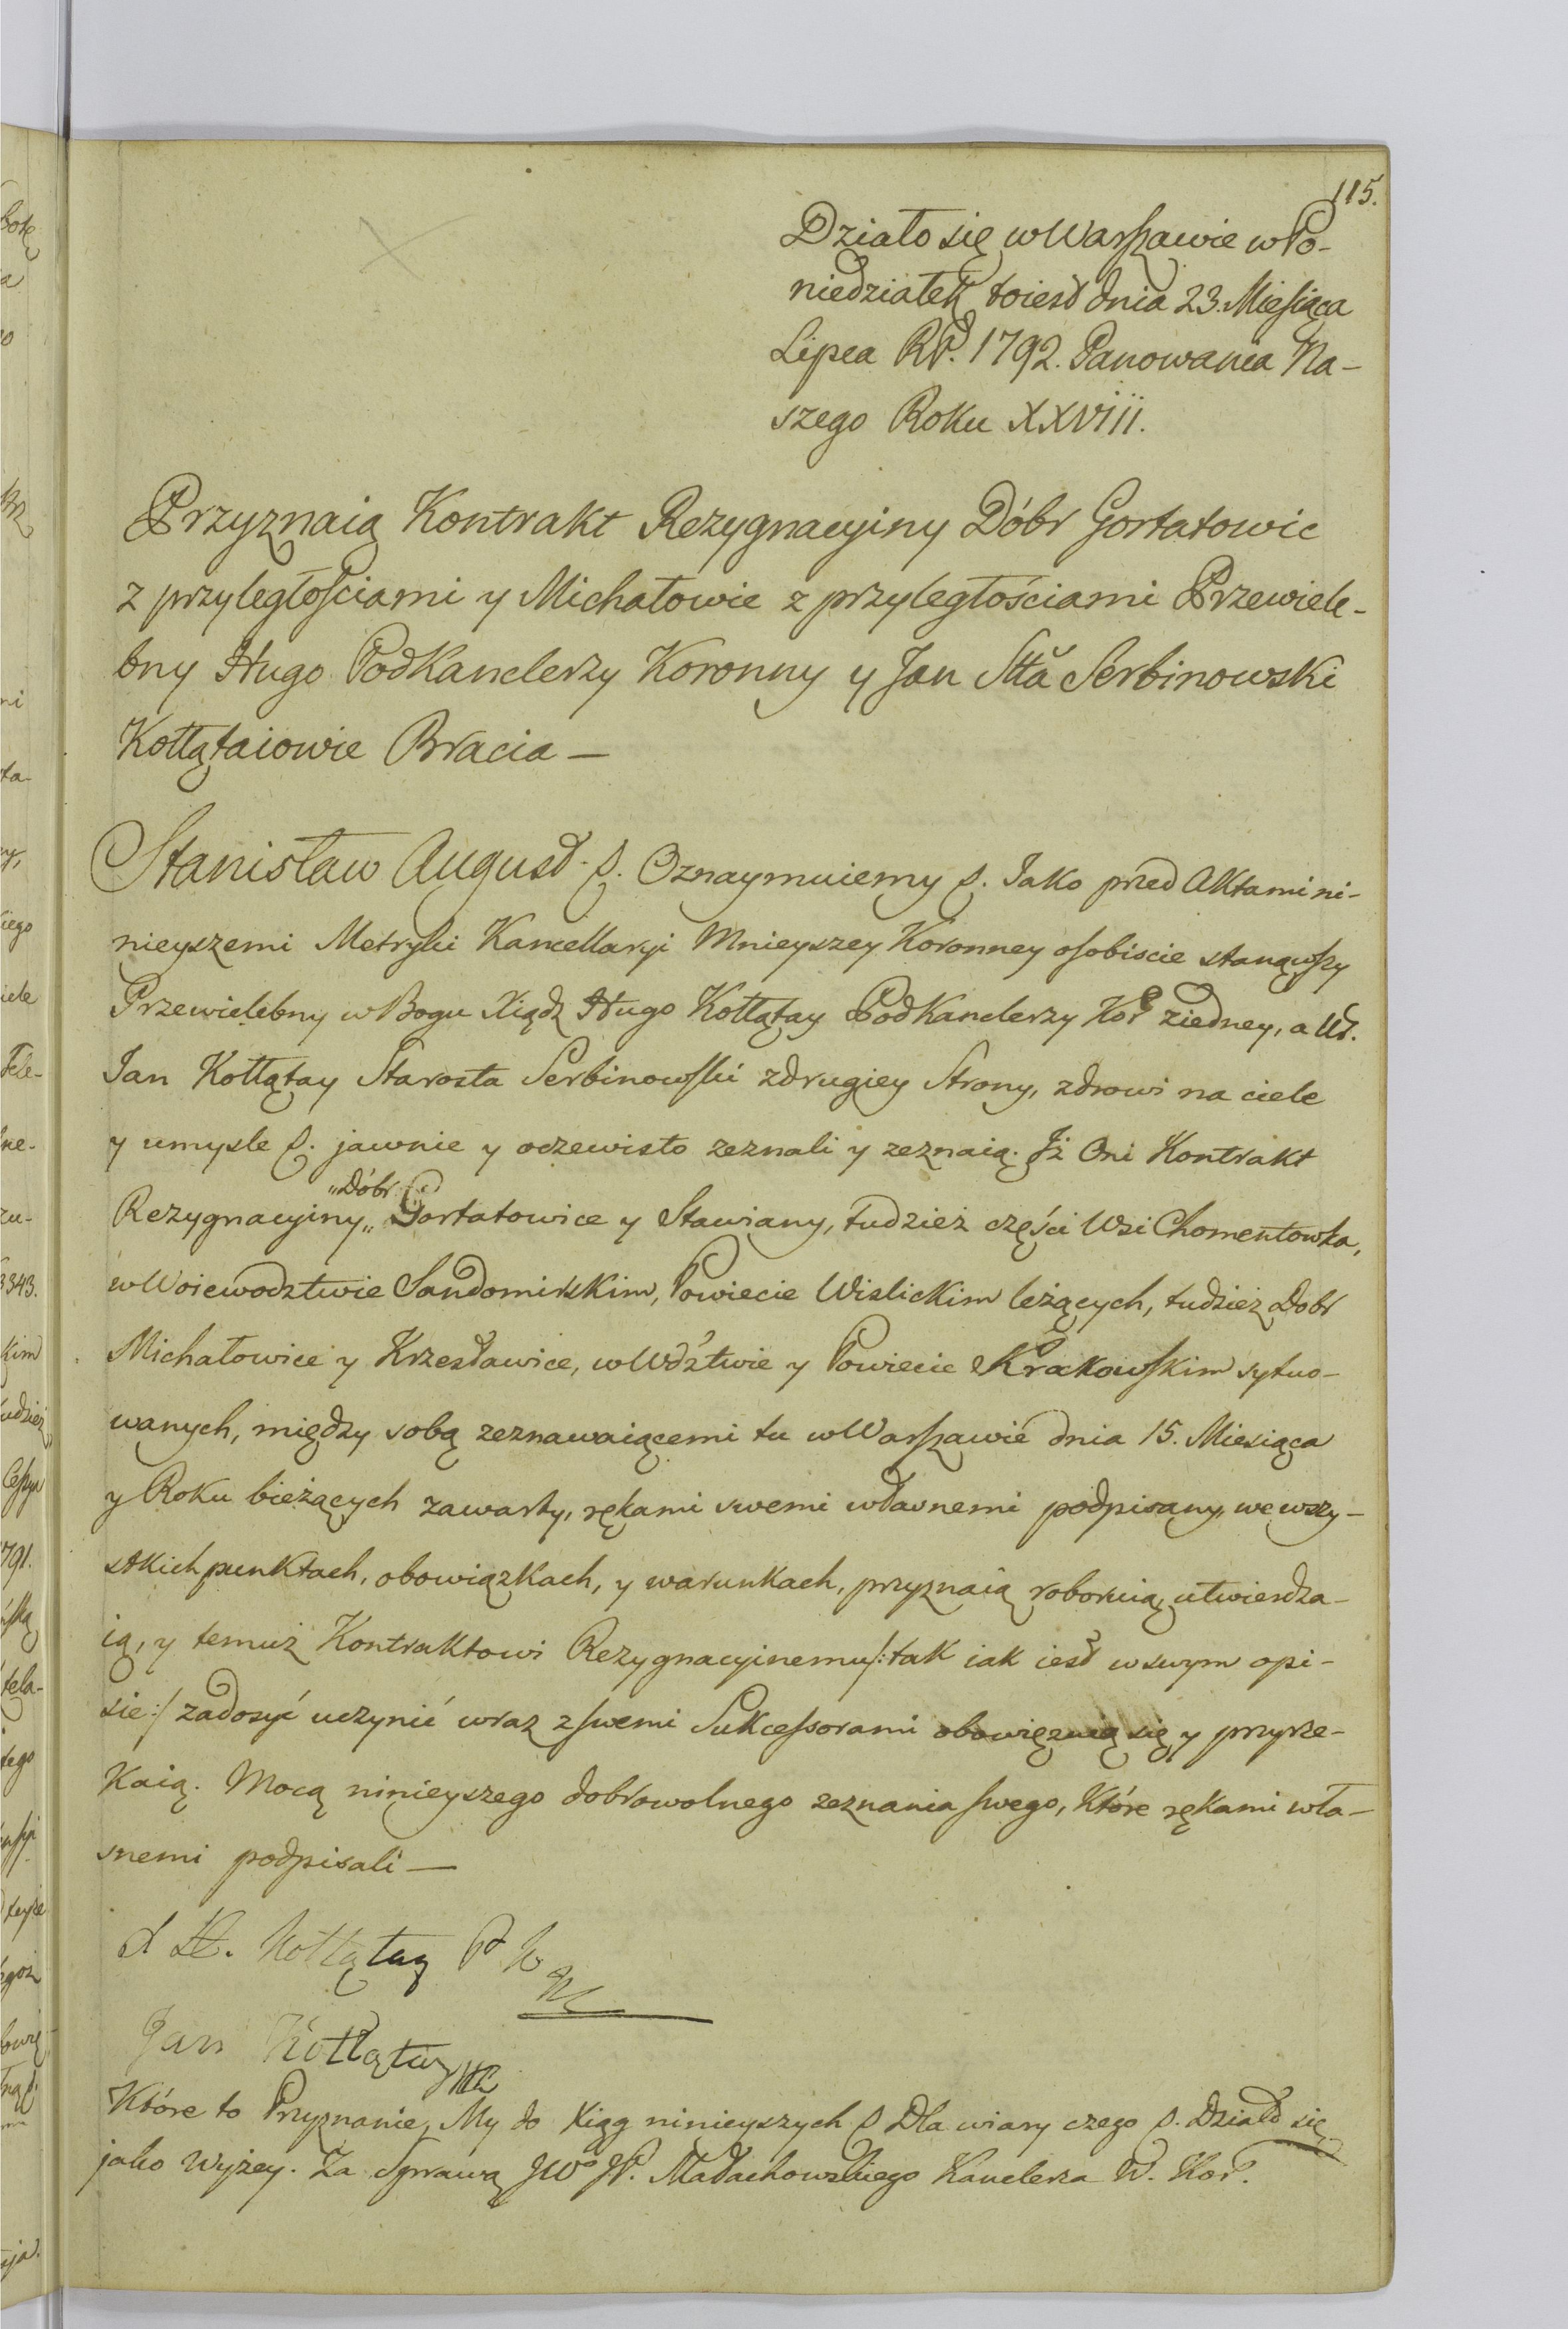 115.
Działo się w Warszawie w Po-
niedziałek toiest dnia 23. Miesiąca
Lipca RP. 1792. Panowania Na-
szego Roku XXVIII.
Przyznaią Kontrakt Rezygnacyiny Dóbr Gortatowic
z przyległościami y Michałowic z przyległościami Przewiele-
bny Hugo Podkanclerzy Koronny y Jan Sttă Serbinowski
Kołłątaiowie Bracia —
Stanisław August. p. Oznaymuiemy p. Iako przed Aktami ni-
nieyszemi Metryki Kancellaryi Mnieyszey Koronney osobiscie stanąwszy
Przewielebny w Bogu Xiądz Hugo Kołłątay Podkanclerzy Kor z iedney, a Ur.
Ian Kołłątay Starosta Serbinowski z drugiey Strony, zdrowi na ciele
y umysle p. jawnie y oczewisto zeznali y zeznaią. Iż Oni Kontrakt
Rezygnacyiny „Dóbr„ Gortatowice y Stawiany, tudzież części Wsi Chomentowka,
w Woiewodztwie Sandomirskim, Powiecie Wislickim leżących, tudzież Dobr
Michałowice y Krzesławice, w Wdztwie y Powiecie Krakowskim sytuo-
wanych, między sobą zeznawaiącemi tu w Warszawie dnia 15. Miesiąca
y Roku bieżących zawarty, rękami swemi własnemi podpisany, we wszy-
stkich punktach, obowiązkach, y warunkach, przyznaią roboruią, utwierdza-
ią, y temuż Kontraktowi Rezygnacyinemu /: tak iak iest w swym opi-
sie :/ zadosyć uczynić wraz z swemi Sukcessorami obowięzuią się y przyrze-
kaią. Mocą ninieyszego dobrowolnego zeznania swego, które rękami wła-
snemi podpisali —
X H. Kołłątay P K
Jan Kołłątay
Które to Przyznanie, My do Xiąg ninieyszych p Dla wiary czego p. Działo się
jako wyżey. Za Sprawą JWo JP. Małachowskiego Kanclerza W. Kor.